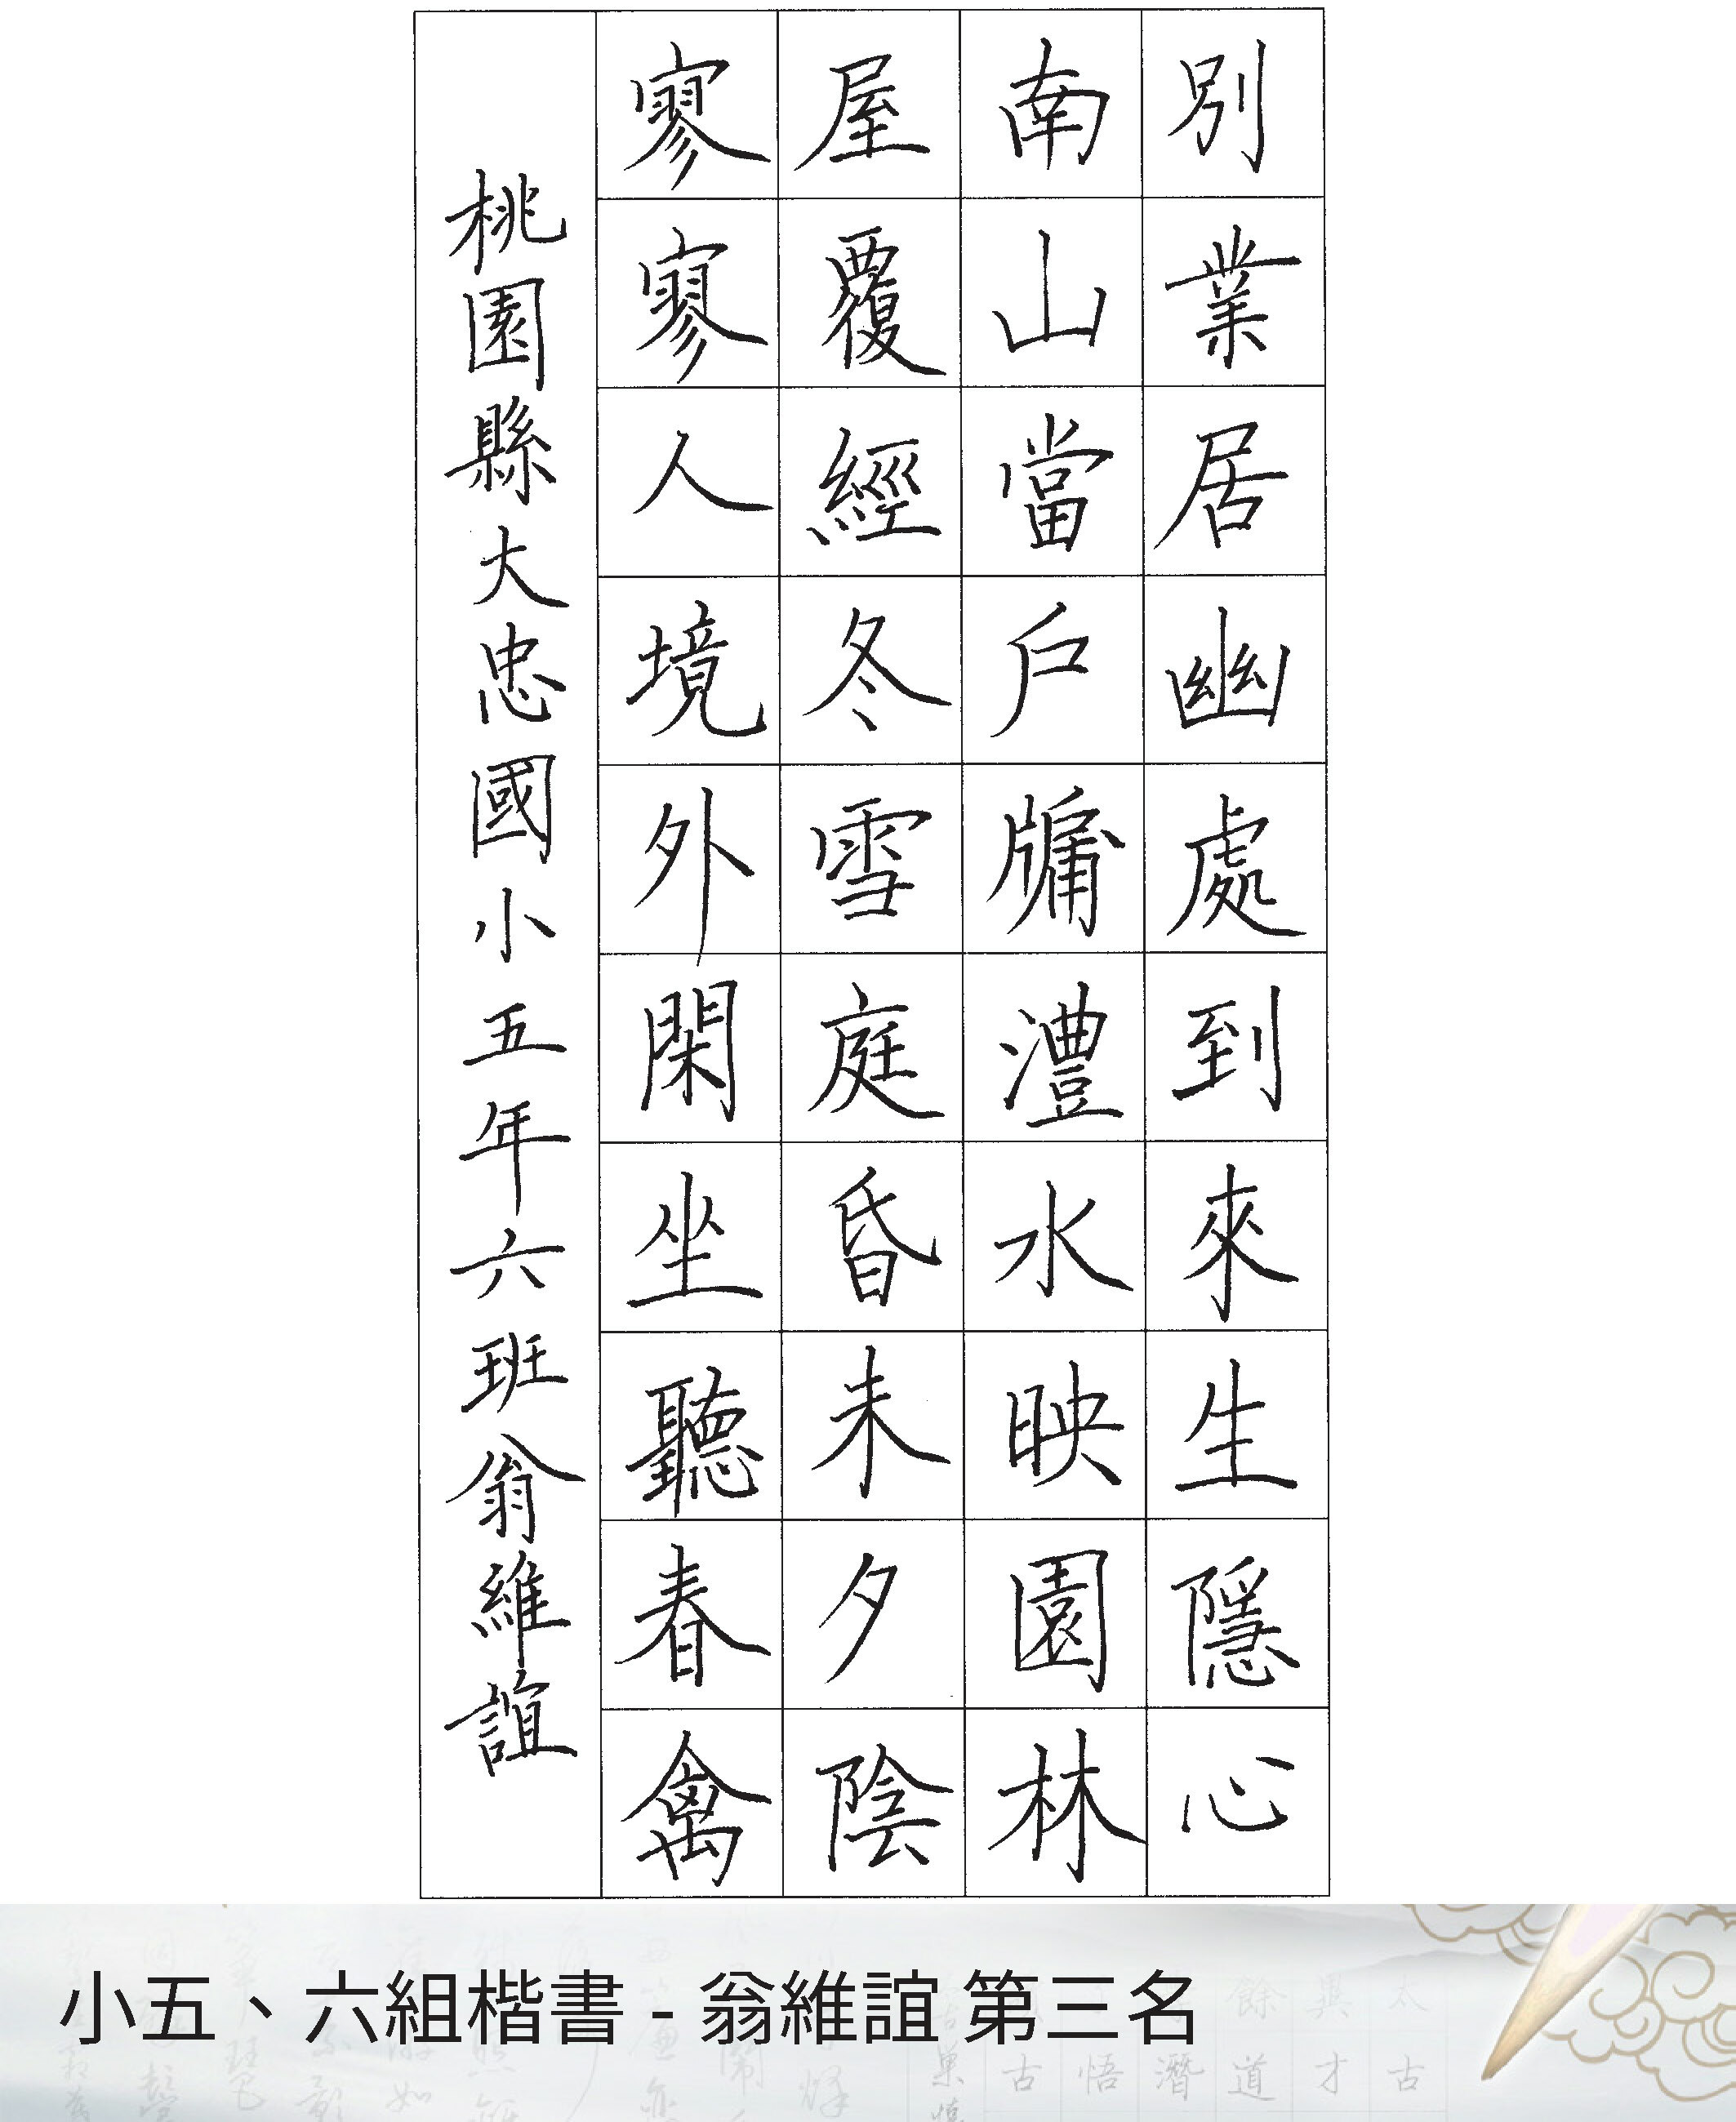 別業居幽處到來生隱心
南山當戶牖澧水映園林
屋覆經冬雪庭昏未夕陰
寥寥人境外閑坐聽春禽
桃園縣大忠國小五年六班翁維誼
小五、六組楷書 - 翁維誼 第三名